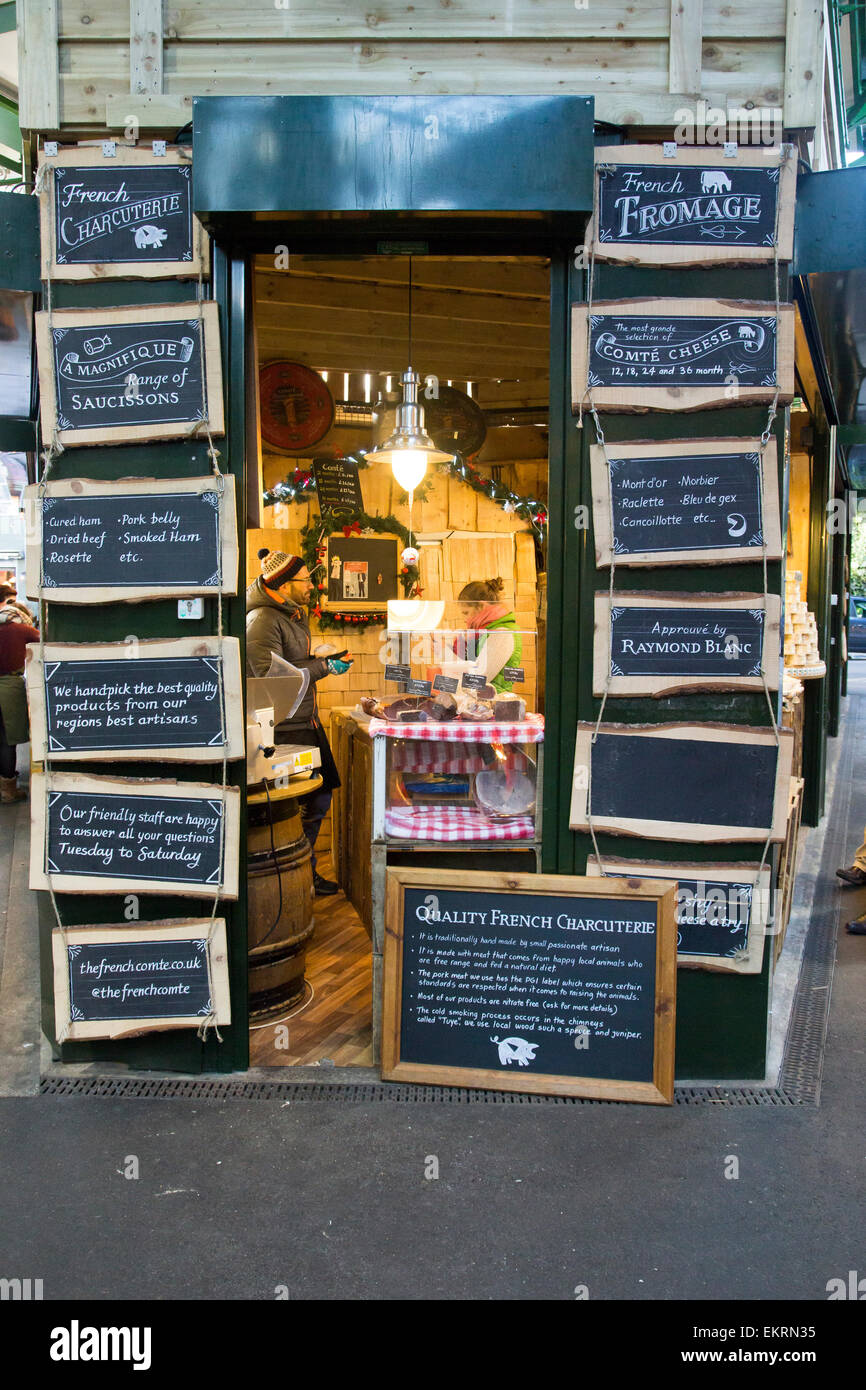 French
CHARCUTERIE
A MAGNIFIQUE
Range of
SAUCISSONS
• Cured ham • Pork belly
• Dried beef • Smoked Ham
• Rosette etc.
We handpick the best quality
products from our
regions best artisans
Our friendly staff are happy
to answer all your questions
Tuesday to Saturday
thefrenchcomte.co.uk
@thefrenchcomte
Comté
French
FROMAGE
The most grande
selection of
COMTÉ CHEESE
12, 18, 24 and 36 month
• Mont d'or • Morbier
• Raclette • Bleu de gex
• Cancoillotte etc...
Approuvé by
RAYMOND BLANC
shy...
cheese a try
QUALITY FRENCH CHARCUTERIE
• It is traditionally hand made by small passionate artisan
• It is made with meat that comes from happy local animals who
are free range and fed a natural diet.
• The pork meat we use has the PGI label which ensures certain
standards are respected when it comes to raising the animals.
• Most of our products are nitrate free (ask for more details)
• The cold smoking process occurs in the chimneys
called "Tuye", we use local wood such a spruce and juniper.
alamy
a
alamy stock photo
EKRN35
www.alamy.com